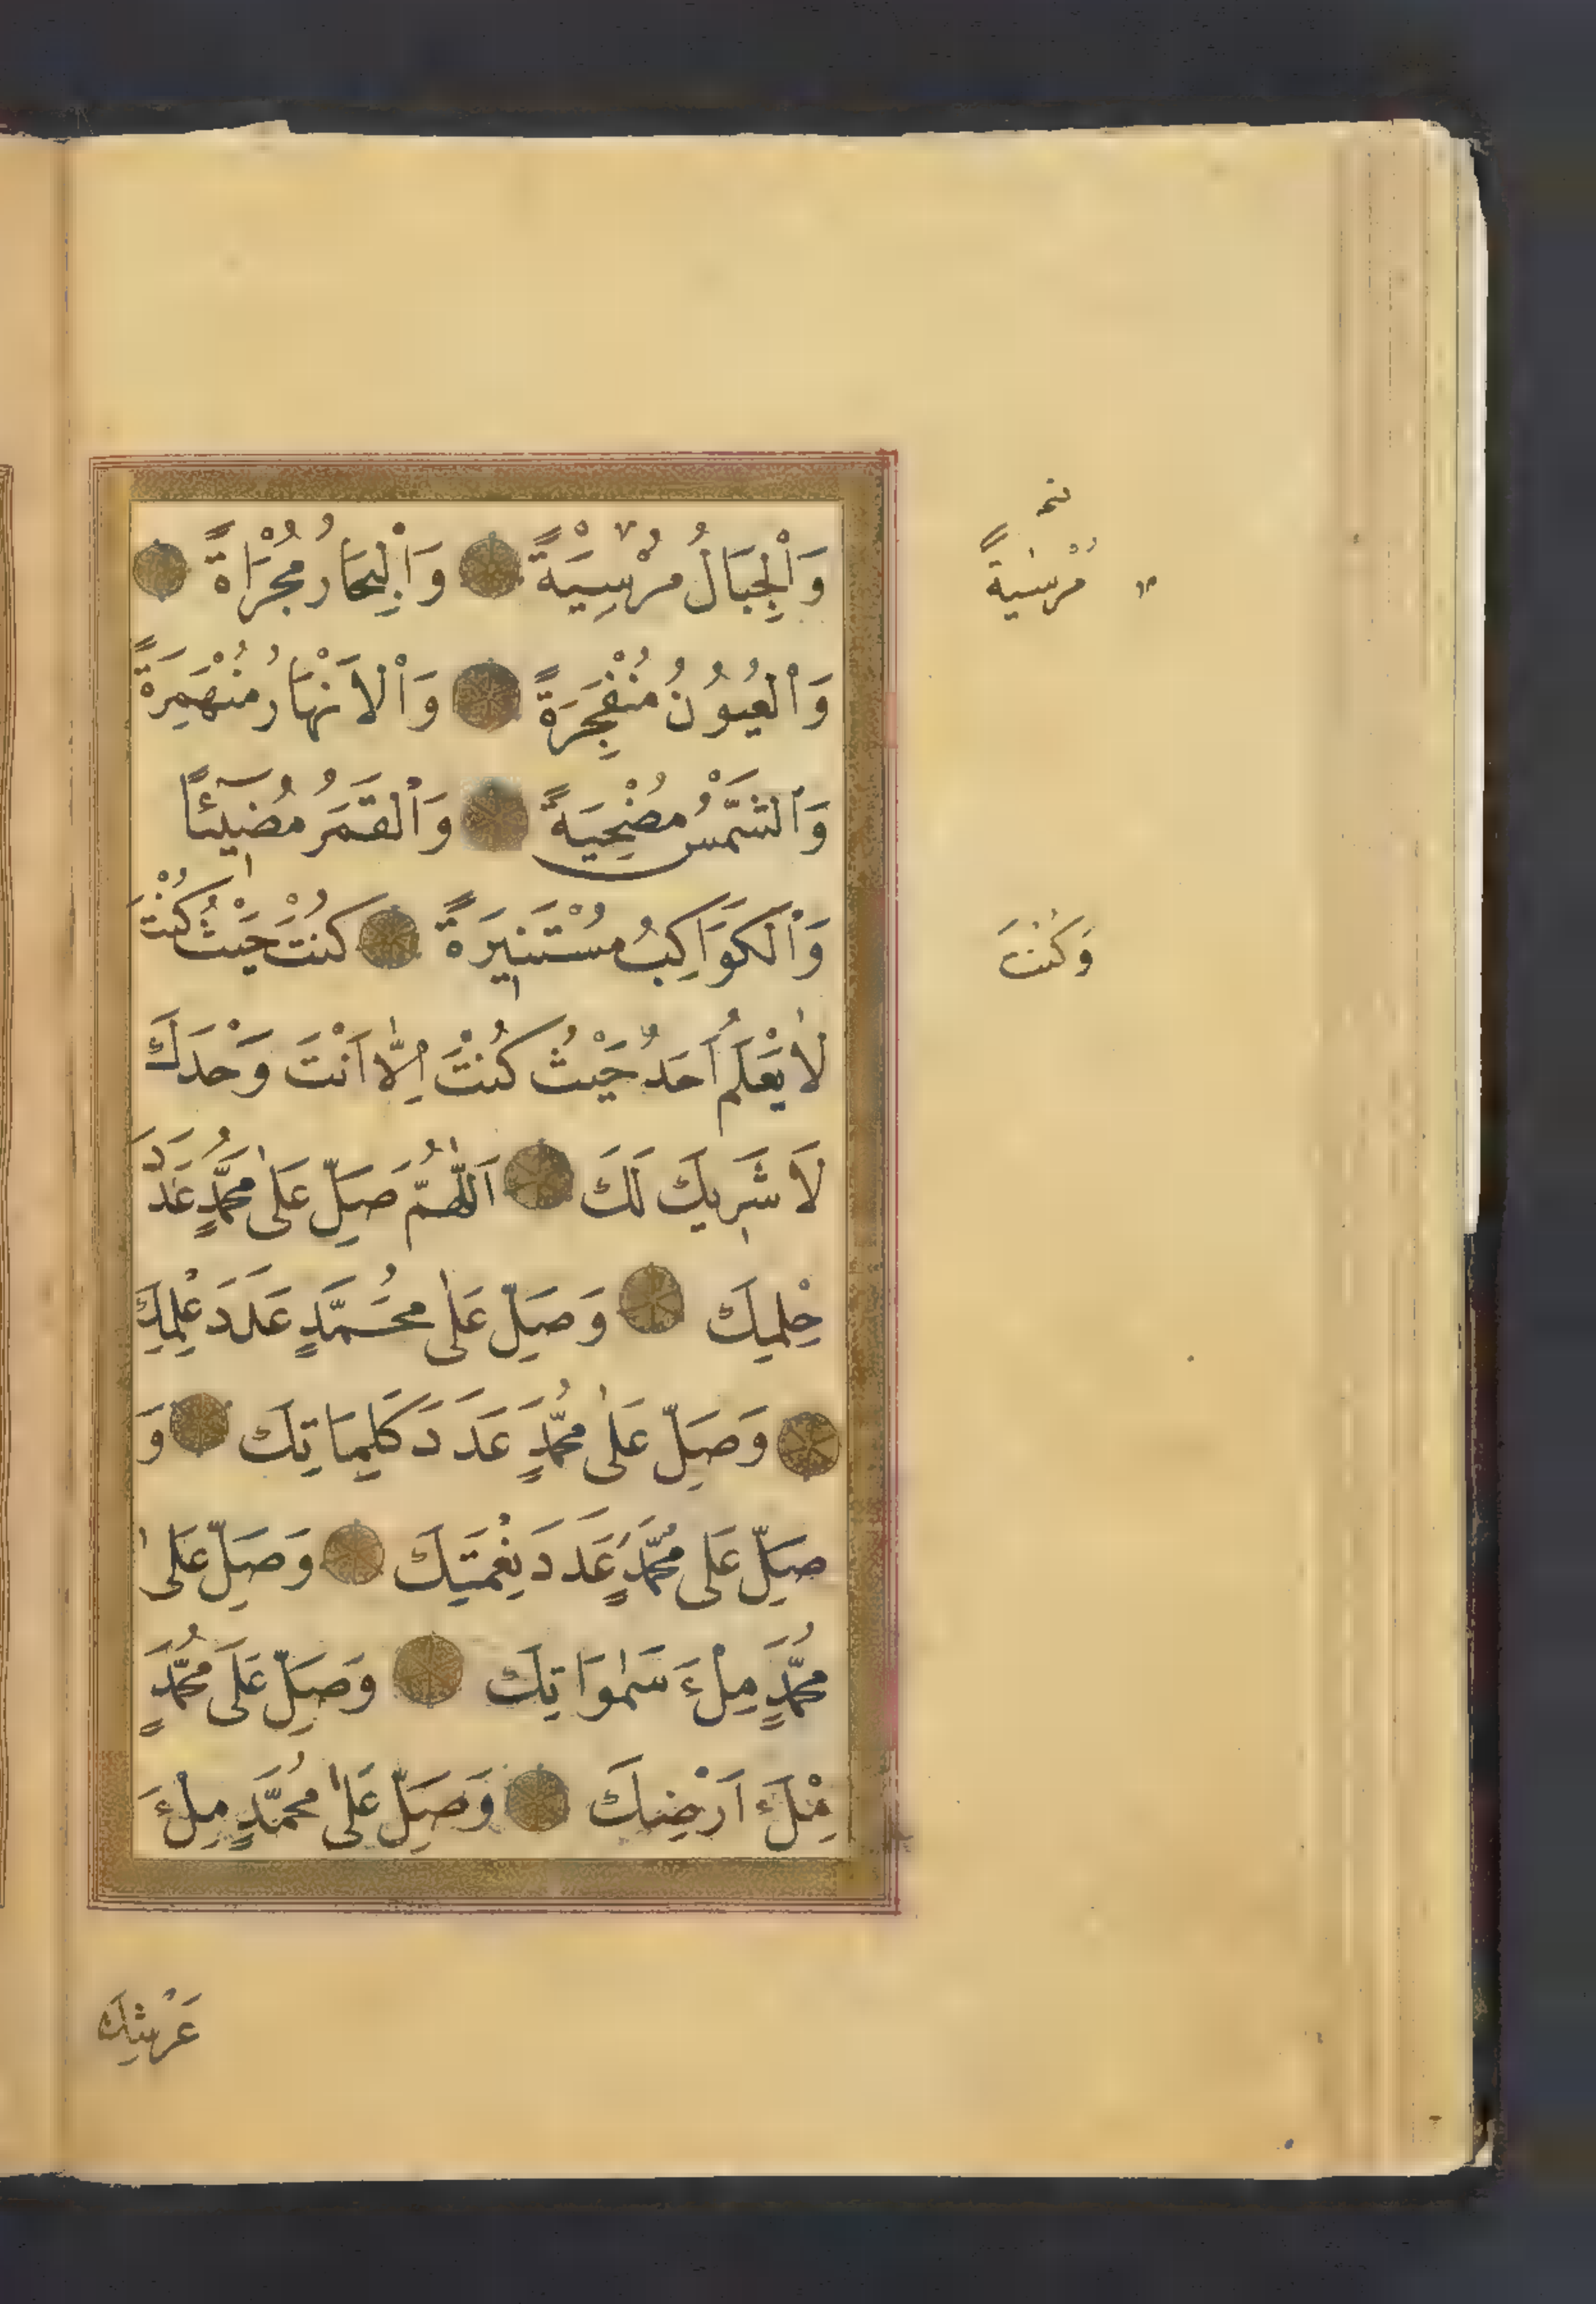 وَالْجِبَالُ مُرْسِيَةً وَالْبِحَارُ مُجْرَاةً
وَالْعُيُونُ مُنْفَجِرَةً وَالْاَنْهَارُ مُنْهَمِرَةً
وَالشَّمْسُ مُضْحِيَةً وَالْقَمَرُ مُضِيئًا
وَالْكَوَاكِبُ مُسْتَنِيرَةً كُنْتَ حَيْثُ كُنْتَ
لَا يَعْلَمُ اَحَدٌ حَيْثُ كُنْتَ اِلَّا اَنْتَ وَحْدَكَ
لَا شَرِيكَ لَكَ اَللّٰهُمَّ صَلِّ عَلٰى مُحَمَّدٍ عَدَدَ
حِلْمِكَ وَصَلِّ عَلٰى مُحَمَّدٍ عَدَدَ عِلْمِكَ
وَصَلِّ عَلٰى مُحَمَّدٍ عَدَدَ كَلِمَاتِكَ وَ
صَلِّ عَلَى مُحَمَّدٍ عَدَدَ نِعْمَتِكَ وَصَلِّ عَلٰى
مُحَمَّدٍ مِلْءَ سَمٰوَاتِكَ وَصَلِّ عَلَى مُحَمَّدٍ
مِلْءَ اَرْضِكَ وَصَلِّ عَلٰى مُحَمَّدٍ مِلْءَ
عَرْشِكَ
مُرْسٰيةً
وَكُنْتَ